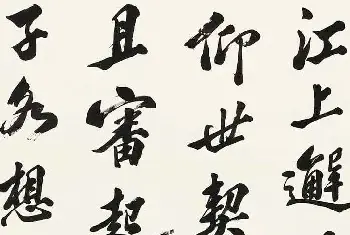 江上邂
仰世契
且審起
子名想